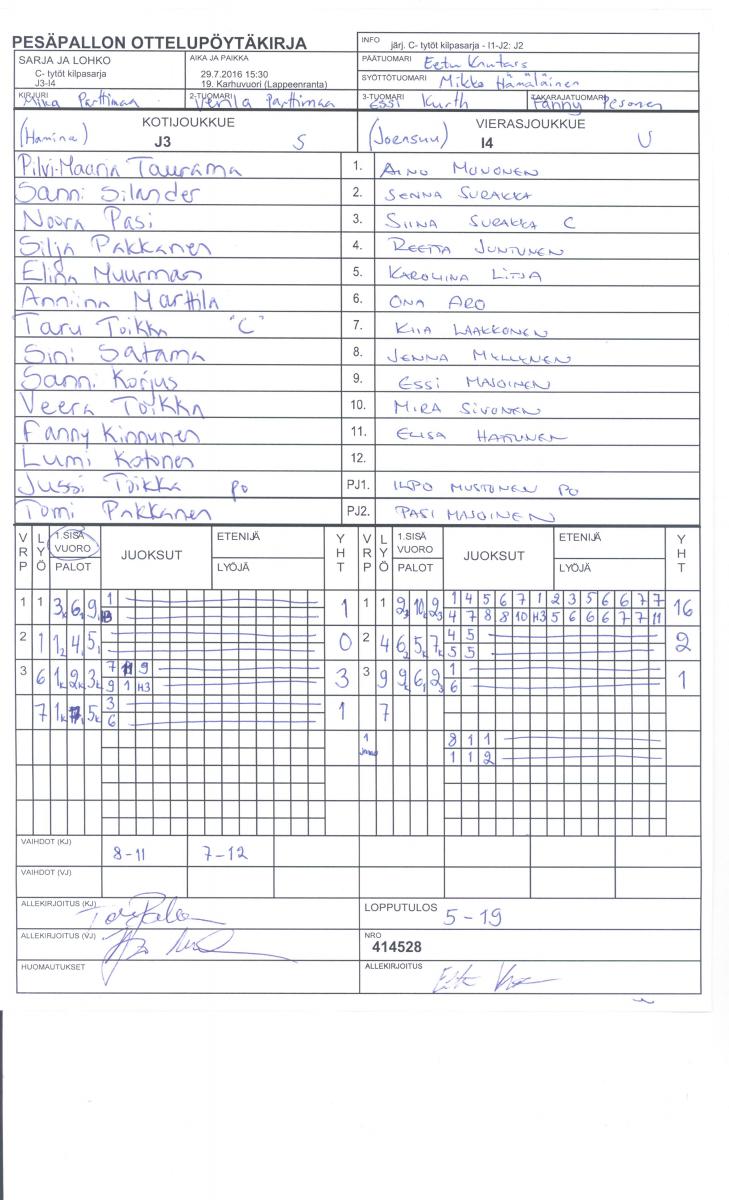 PESÄPALLON OTTELUPÖYTÄKIRJA
INFO järj. C- tytöt kilpasarja - I1-J2: J2
SARJA JA LOHKO
C- tytöt kilpasarja
J3-I4
AIKA JA PAIKKA
29.7.2016 15:30
19. Karhuvuori (Lappeenranta)
PÄÄTUOMARI Eetu
SYÖTTÖTUOMARI Mikko Hämäläinen
KIRJURI Miina Parttimaa
2-TUOMARI Venla Parttimaa
3-TUOMARI Essi Kurth
TAKARAJATUOMARI Fanny Pesonen
(Hamina) KOTIJOUKKUE J3 S
(Joensuu) VIERASJOUKKUE I4 U
Pilvi-Maaria Taurama 1. AINO MUNONEN
Sanni Silander 2. SENNA SURAKKA
Noora Pasi 3. SIINA SURAKKA C
Silja Pakkanen 4. REETTA JUNTUNEN
Elina Muurman 5. KAROLIINA LITJA
Anniina Marttila 6. ONA ARO
Taru Toikka "C" 7. KIIA LAAKKONEN
Sini Satama 8. JENNA MYLLYNEN
Sanni Korjus 9. ESSI MAJOINEN
Veera Toikka 10. MIRA SIVONEN
Fanny Kinnunen 11. ELISA HATTUNEN
Lumi Kotonen 12.
Jussi Toikka PO PJ1. ILPO MUSTONEN PO
Tomi Pakkanen PJ2. PASI MAJOINEN
VRP LYÖ 1.SISÄ VUORO PALOT JUOKSUT ETENIJÄ LYÖJÄ YHT VRP LYÖ 1.SISÄ VUORO PALOT JUOKSUT ETENIJÄ LYÖJÄ YHT
1 1 3 6 9 1 1 1 1 2 10 9 1 4 5 6 7 1 2 3 5 6 6 7 7 16
4 7 8 8 10 H3 5 6 6 6 7 7 11
2 1 1 4 5 0 2 4 6 5 7 4 5 2
5 5
3 6 1 2 3 7 11 9 3 3 9 9 6 2 1 1
9 1 H3 6
7 1 7 5 3 1 7
6
1 8 1 1
1 1 2
VAIHDOT (KJ) 8-11 7-12
VAIHDOT (VJ)
ALLEKIRJOITUS (KJ)
LOPPUTULOS 5-19
ALLEKIRJOITUS (VJ)
NRO
414528
HUOMAUTUKSET
ALLEKIRJOITUS